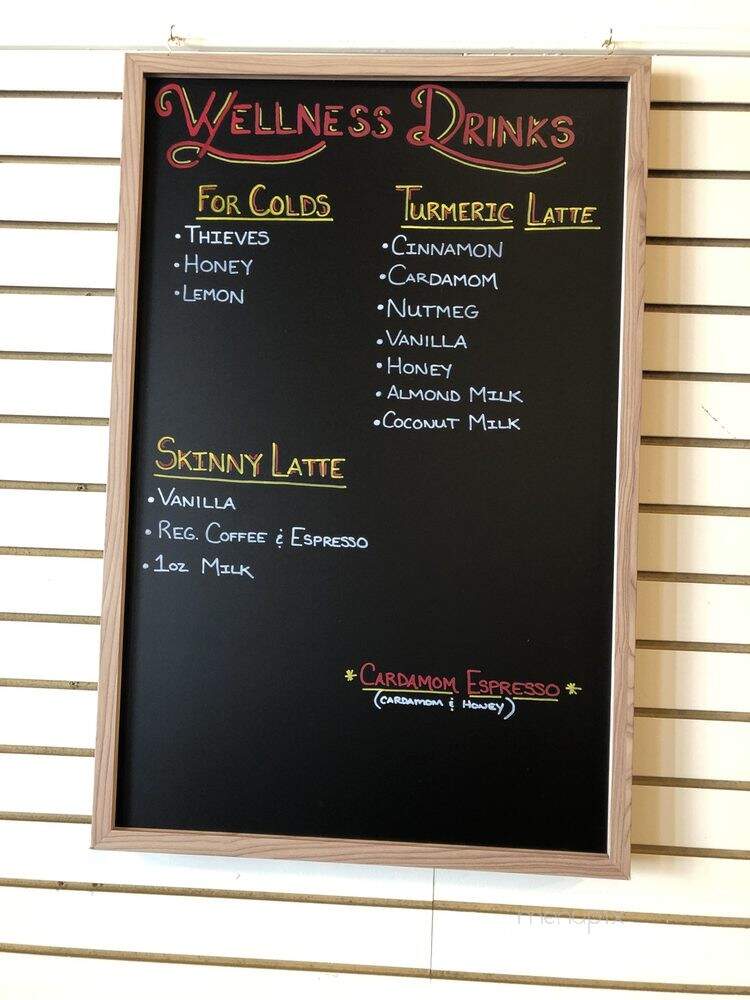 WELLNESS DRINKS
FOR COLDS
• THIEVES
• HONEY
• LEMON
TURMERIC LATTE
• CINNAMON
• CARDAMOM
• NUTMEG
• VANILLA
• HONEY
• ALMOND MILK
• COCONUT MILK
SKINNY LATTE
• VANILLA
• REG. COFFEE & ESPRESSO
• 1oz MILK
* CARDAMOM ESPRESSO *
(CARDAMOM & HONEY)
menupix